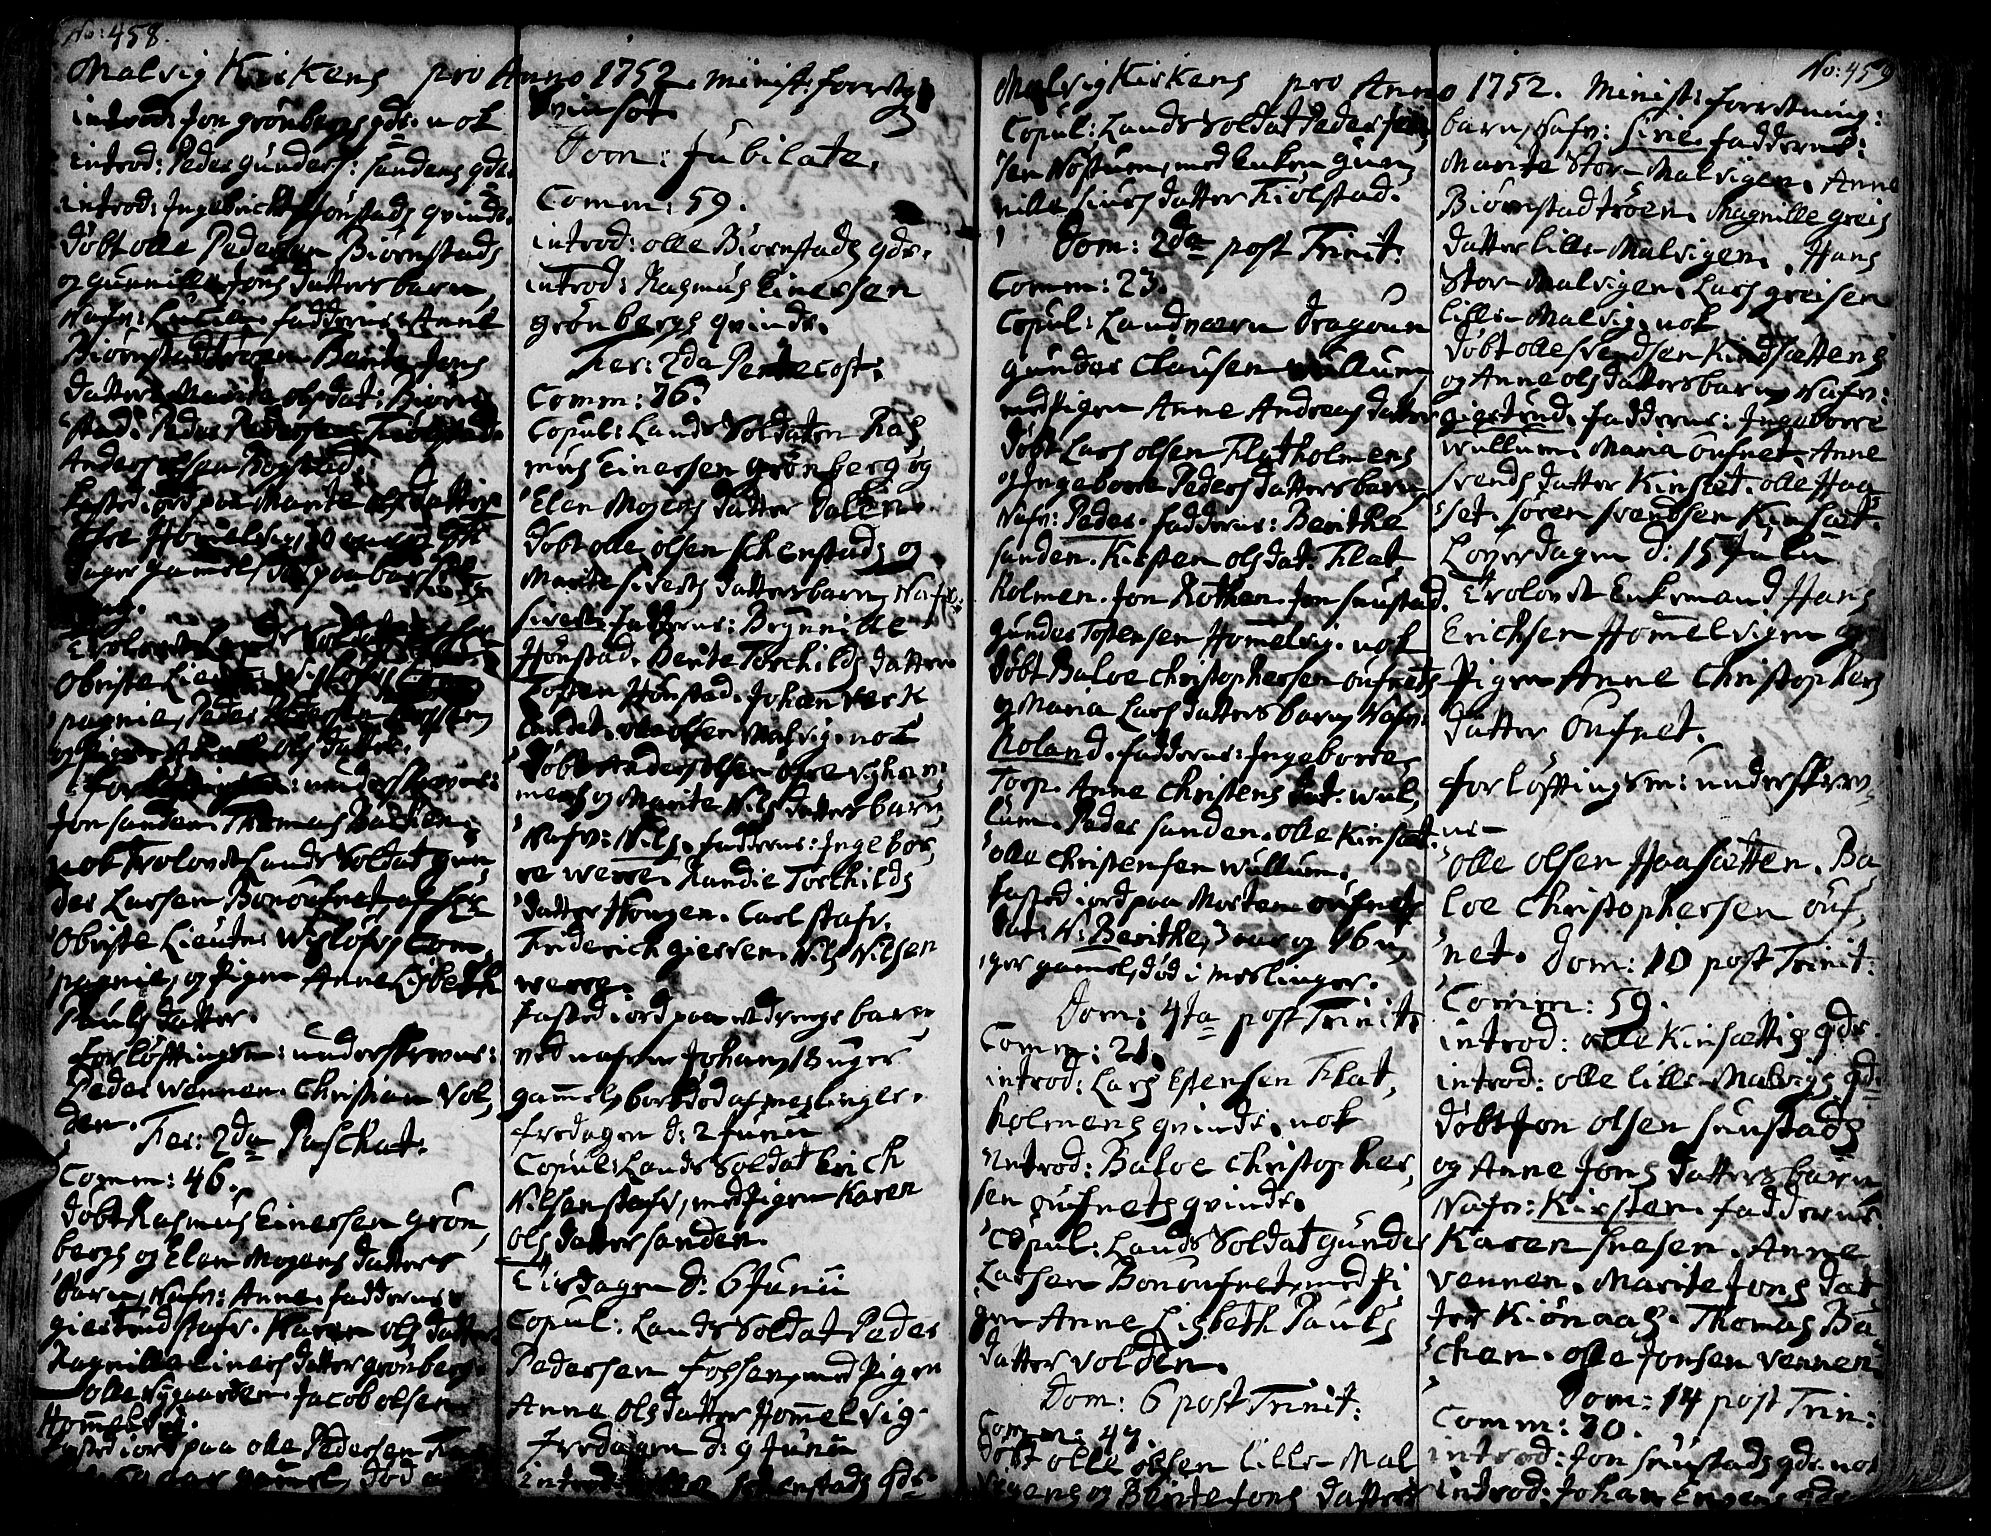 No: 458.
Malvig Kirkens pro Anno 1752. Minist: forretg
introd: Jon grönbergs qde. nok
introd: Peder Gunders: sandens qde.
introd: Ingebricht Hönstads qvinde.
döbt olle Pedersen Biörnstads
og gunnille Jons datters barn,
Nafn: faddernes: Anne
Biörnstadtröen. Berite Jens
datter. Marite olsdat: Biörn
stad. Peder Pedersen Kiölstad.
Anders olsen Bogstad.
kasted iord paa Marite olsdatter
Hommelvig, 30
dager gamel,
Obriste Lieut: Wislöfs Com
pagnie, Peder
og Pigen olsdatter.
underskrevne:
Jon sanden. Thomas Backen.
nok Trolovdt Lands Soldat gun
der Larsen Bonöufnet, af Her
Obriste Lieutn: Wislöfs Com
pagnie, og Pigen Anne Lisbeth
Pauls datter.
forlöftingsm: underskrevne:
Peder wennen. Christian Vol,
den.
Fer: 2da Paschat.
Comm: 46.
döbt Rasmus Einersen grön,
bergs og Elen Mogens datters
barn, Nafn: Anne. faddernes
giertrud stafr. Karen olsdatter
Ragnille Einers datter grönberg.
olle Nygaarden. Jacob olsen
Hommelvig.
kasted iord paa olle Pedersen
gamel, död
vinsot.
Dom: Jubilate.
Comm: 59.
introd: olle Biörnstads qde.
introd: Rasmus Einersen
grönbergs qvinde.
Fer: 2da Pentecost:
Comm: 76.
Copul: Lands Soldaten Ras
mus Einersen grönberg og
Elen Mogens datter dalen.
döbt olle olsen schenstads og
Marite siverts datters barn, Nafn:
sivert. faddernes: Brynnilde
Hönstad. Berite Torchilds datter
Tosten Hönstad. Johan verk
olle olsen Malvig. nok
döbt Anders olsen öfre vigham
mens og Marite Nils datters barn
Nafn: Nils. faddernes: Ingebor,
re werre. Randie Torchilds
datter Hougen. Carl stafr.
Friderich giersen. Nils Nilsen
werre.
kasted iord paa et drenge barn
ved nafn Johan, 18 uger
gammel, bortdöd af meslinger.
fredagen d: 2 Junii
Copul: Lands Soldat Erich
Nilsen stafr, med Pigen Karen
ols datter sanden.
Tirsdagen d: 6 Junii
Copul: Lands Soldat Peder
Pedersen Fossen, med Pigen
Anne olsdatter Hommelvig.
fredagen d: 9 Junii
introd: schenstads qde.
No: 459
Malvig Kirkens pro Anno 1752. Minist: forretning:
Copul: Lands Soldat Peder
sen Nöstuen, med Enken gun
nille siurs datter Kiölstad.
Dom: 2da post Trinit:
Comm: 23.
Copul: Landværn dragoun
gunder Clausen wullum
med Pigen Anne Andreas datter
döbt Lars olsen Flatholmens
og Ingeborre Peders datters barn,
Nafn: Peder. faddernes: Berithe
sanden. Kirsten olsdat. Flat
holmen. Jon Rothen. Jon snustad.
gunder Tostensen Hommelvig. nok
döbt Baloe Christophersen öufnets
og Maria Lars datters barn, Nafn:
Roland. faddernes: Ingeborre
Torp. Anne Christens dat: wul,
lum. Peder sanden. olle Kinsæt.
olle Christensen wullum.
kasted iord paa Morten öufnets
dat: N: Berithe, 3 aar og 16 u,
ger gamel, död i meslinger.
Dom: 4ta post Trinit:
Comm: 21.
introd: Lars Estensen Flat,
holmens qvinde. nok
introd: Baloe Christopher,
sen öufnets qvinde.
Copul: Lands Soldat gunder
Larsen Bonöufnet, med Pi
gen Anne Lisbeth Pauls
datter volden.
Dom: 6 post Trinit:
Comm: 47.
döbt olle olsen lille Mal
vigens og Berite Jons datters
barn, Nafn: Sirie. faddernes:
Marite Stor-Malvigen. Anne
Biörnstadtröen. Magnille greis
datter lille-Malvigen. Hans
Stor-Malvigen. Lars greisen
lille-Malvig. nok
döbt olle svendsen Kindsættens
og Anne ols datters barn, Nafn:
giertrud. faddernes: Ingeborre
wullum. Maria öufnet. Anne
svends datter Kinsæt. olle Haa
set. sören svendsen Kinsæt.
Löverdagen d: 15 Julii
Trolovdt Enkemand Hans
Erichsen Hommelvigen og
Pigen Anne Christophers
datter öufnet.
forlöftingsm: underskrev,
ne
olle olsen Haasætten. Ba
loe Christophersen öuf,
net. Dom: 10 post Trinit:
Comm: 59.
introd: olle Kinsættis qde.
introd: olle lille-Malvigs qd.
döbt Jon olsen snustads
og Anne Jons datters barn
Nafn: Kirsten. faddernes:
Karen snesen. Anne
vennen. Marite Jons dat
ter Kiönaas. Thomas Ba
chen. olle Jonsen vennen
Dom: 14 post Trin:
Comm: 70.
introd: Jon snustads qde. nok
introd: Johan Engens qde.